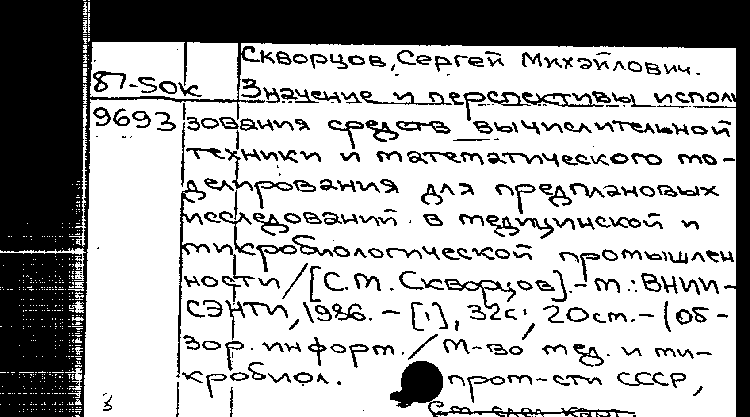 Скворцов, Сергей Михайлович.
87-50к Значение и перспективы исполь
9693 зования средств вычислительной
техники и математического мо-
делирования для предплановых
исследований в медицинской и
микробиологической промышлен
ности / [С.М. Скворцов]. - М.: ВНИИ-
СЭНТИ, 1986. - [1], 32с; 20см. - (Об-
зор. информ. / М-во мед. и ми-
кробиол. пром-сти СССР,
См. след. карт.